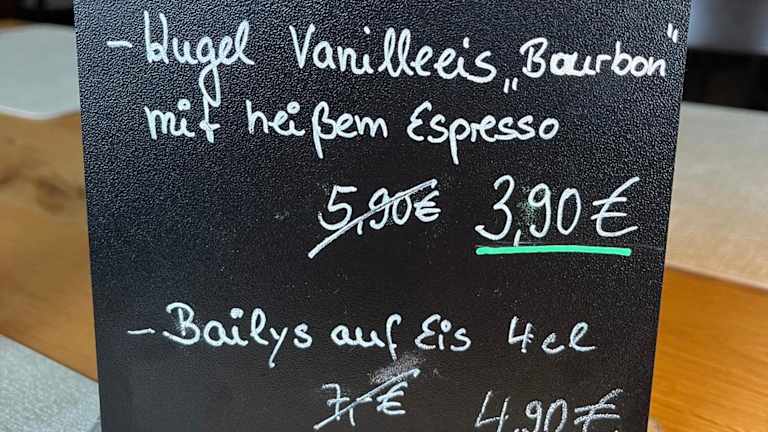 - Kugel Vanilleeis „Bourbon“
mit heißem Espresso
5,90€ 3,90€
- Bailys auf Eis 4cl
7,-€ 4,90€